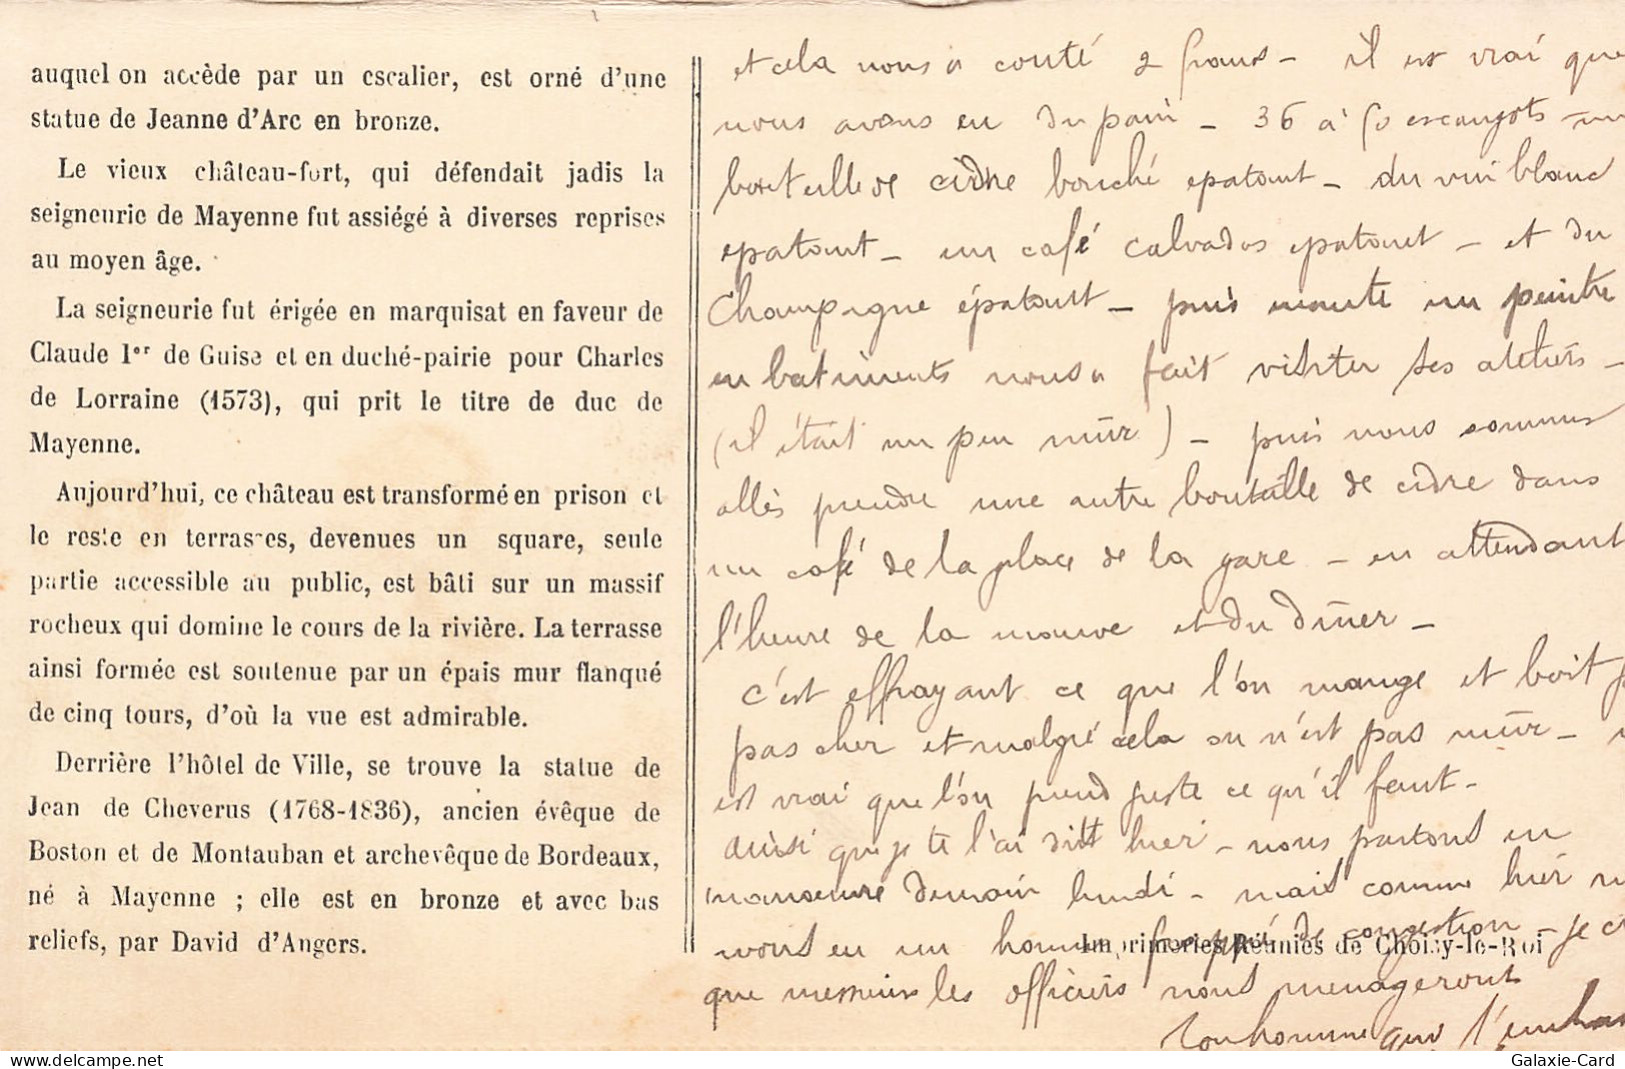 auquel on accède par un escalier, est orné d'une
statue de Jeanne d'Arc en bronze.
Le vieux château-fort, qui défendait jadis la
seigneurie de Mayenne fut assiégé à diverses reprises
au moyen âge.
La seigneurie fut érigée en marquisat en faveur de
Claude 1er de Guise et en duché-pairie pour Charles
de Lorraine (1573), qui prit le titre de duc de
Mayenne.
Aujourd'hui, ce château est transformé en prison et
le reste en terrasses, devenues un square, seule
partie accessible au public, est bâti sur un massif
rocheux qui domine le cours de la rivière. La terrasse
ainsi formée est soutenue par un épais mur flanqué
de cinq tours, d'où la vue est admirable.
Derrière l'hôtel de Ville, se trouve la statue de
Jean de Cheverus (1768-1836), ancien évêque de
Boston et de Montauban et archevêque de Bordeaux,
né à Mayenne ; elle est en bronze et avec bas
reliefs, par David d'Angers.
et cela nous a couté 2 francs - il est vrai que
nous avons eu du pain - 36 à 50 escargots - un
bouteille de cidre bouché epatant - du vin blanc
epatant - un café calvados epatant - et du
Champagne épatant - puis ensuite un peintre
en batiments nous a fait visiter ses ateliers -
(il était un peu mûr) - puis nous sommes
allés prendre une autre bouteille de cidre dans
un café de la place de la gare - en attendant
l'heure de la manœuvre et du dîner -
c'est effrayant ce que l'on mange et boit
pas cher et malgré cela on n'est pas mûr -
est vrai que l'on prend juste ce qu'il faut -
ainsi que je te l'ai dit hier - nous partons en
manoeuvre demain lundi - mais comme hier
avons eu un homme frappé de congestion - je
que messieurs les officiers nous menageront
Ton homme qui t'embras
Imprimeries Réunies de Choisy-le-Roi
Galaxie-Card